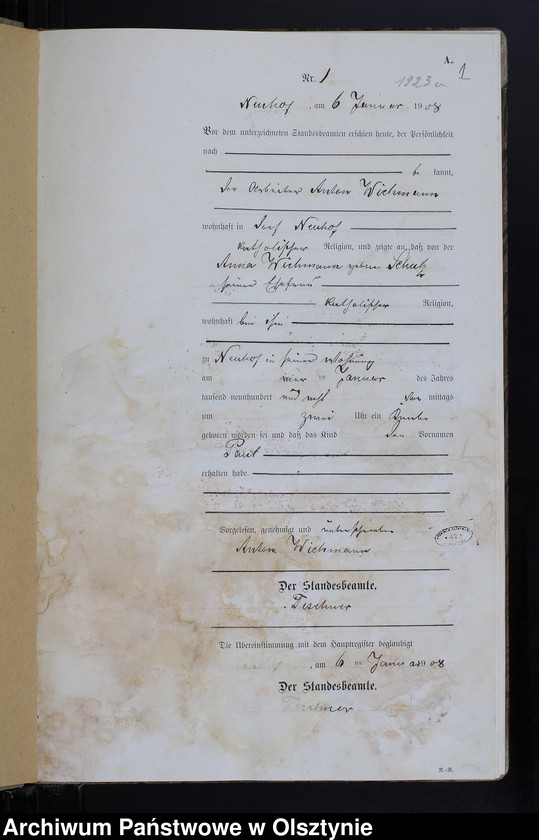 A.
1
Nr. 1
1923
Neuhof, am 6 Januar 1908
Vor dem unterzeichneten Standesbeamten erschien heute, der Persönlichkeit
nach
be kannt,
der Arbeiter Anton Wichmann
wohnhaft in Dorf Neuhof
katholischer Religion, und zeigte an, daß von der
Anna Wichmann geborne Schulz
seiner Ehefrau
katholischer Religion,
wohnhaft bei ihm
zu Neuhof in seiner Wohnung
am vier ten Januar des Jahres
tausend neunhundert und acht mittags
um zwei Uhr ein Knabe
geboren worden sei und daß das Kind den Vornamen
Paul
erhalten habe.
Vorgelesen, genehmigt und unterschrieben
Anton Wichmann
Der Standesbeamte.
Die Übereinstimmung mit dem Hauptregister beglaubigt
, am 6 ten Januar 1908
Der Standesbeamte.
Archiwum Państwowe w Olsztynie